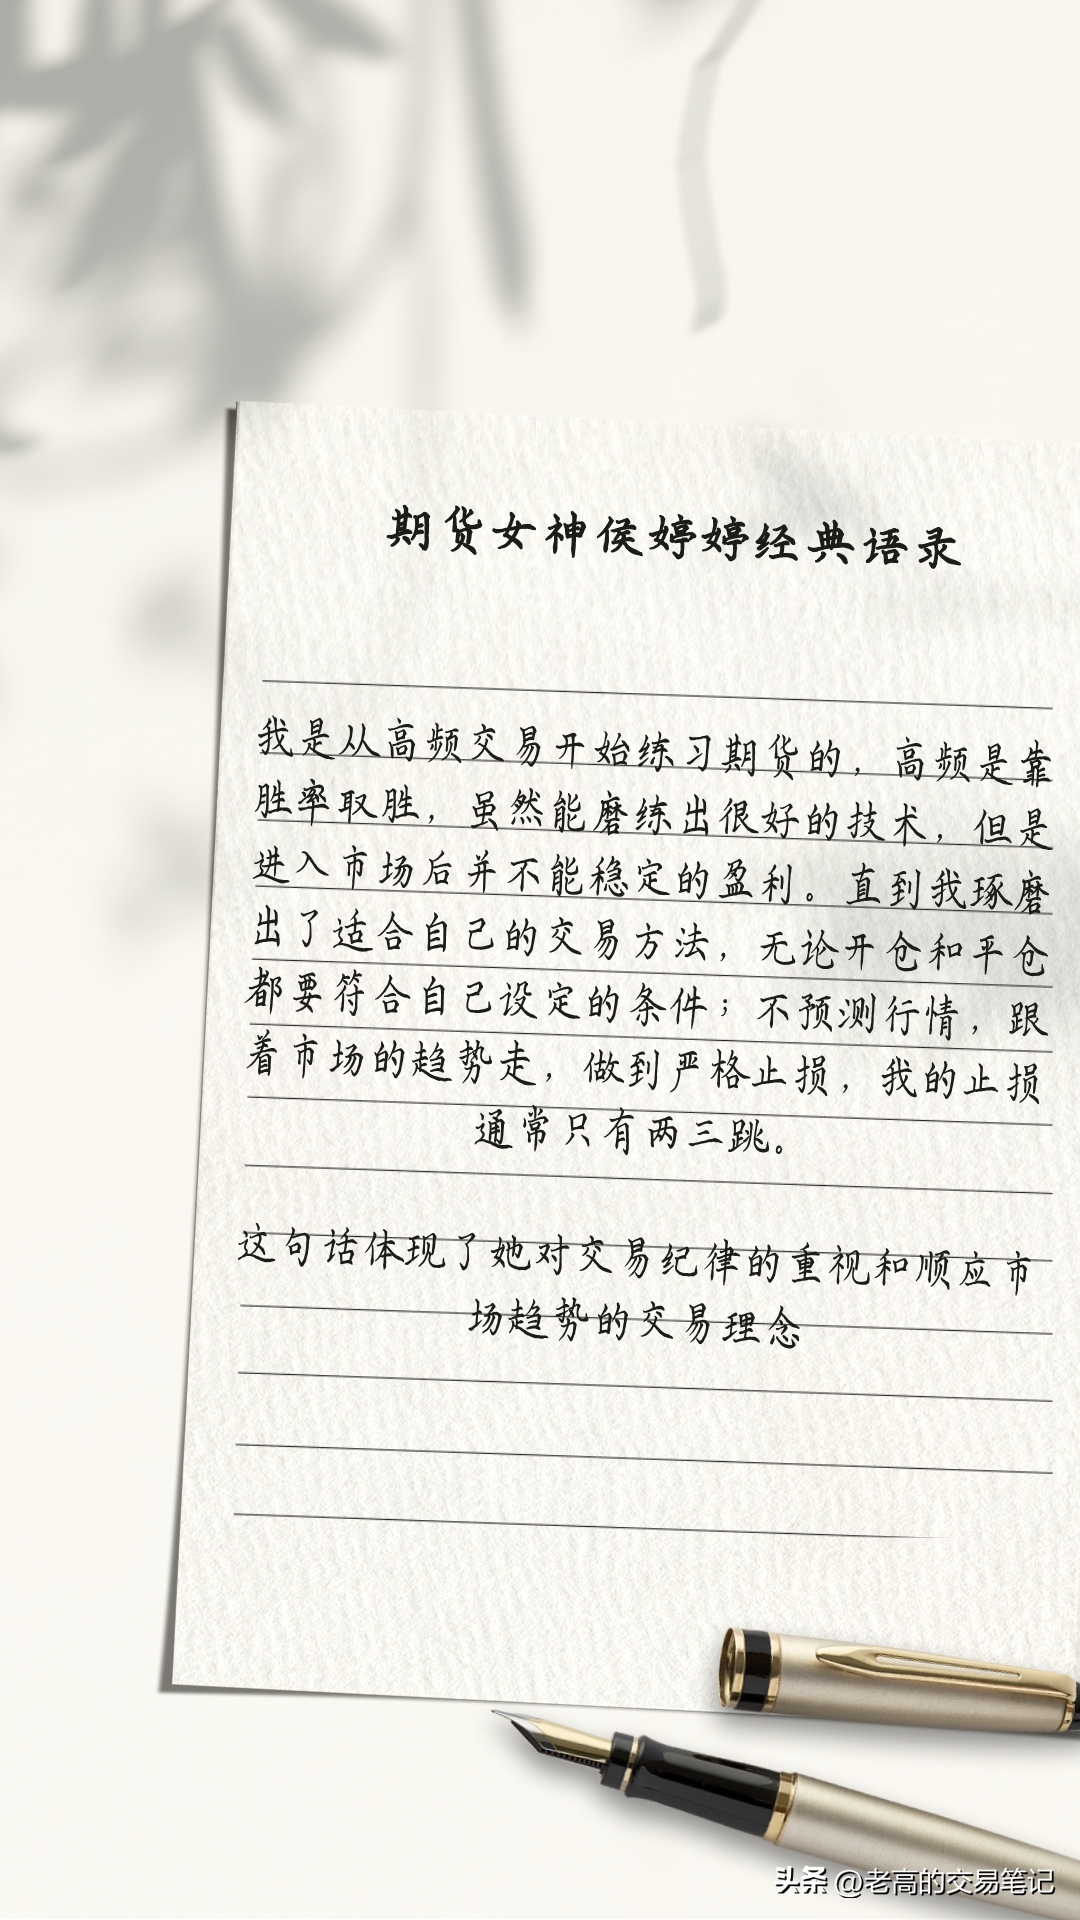 期货女神侯婷婷经典语录
我是从高频交易开始练习期货的，高频是靠
胜率取胜，虽然能磨练出很好的技术，但是
进入市场后并不能稳定的盈利。直到我琢磨
出了适合自己的交易方法，无论开仓和平仓
都要符合自己设定的条件；不预测行情，跟
着市场的趋势走，做到严格止损，我的止损
通常只有两三跳。
这句话体现了她对交易纪律的重视和顺应市
场趋势的交易理念
头条 @老高的交易笔记